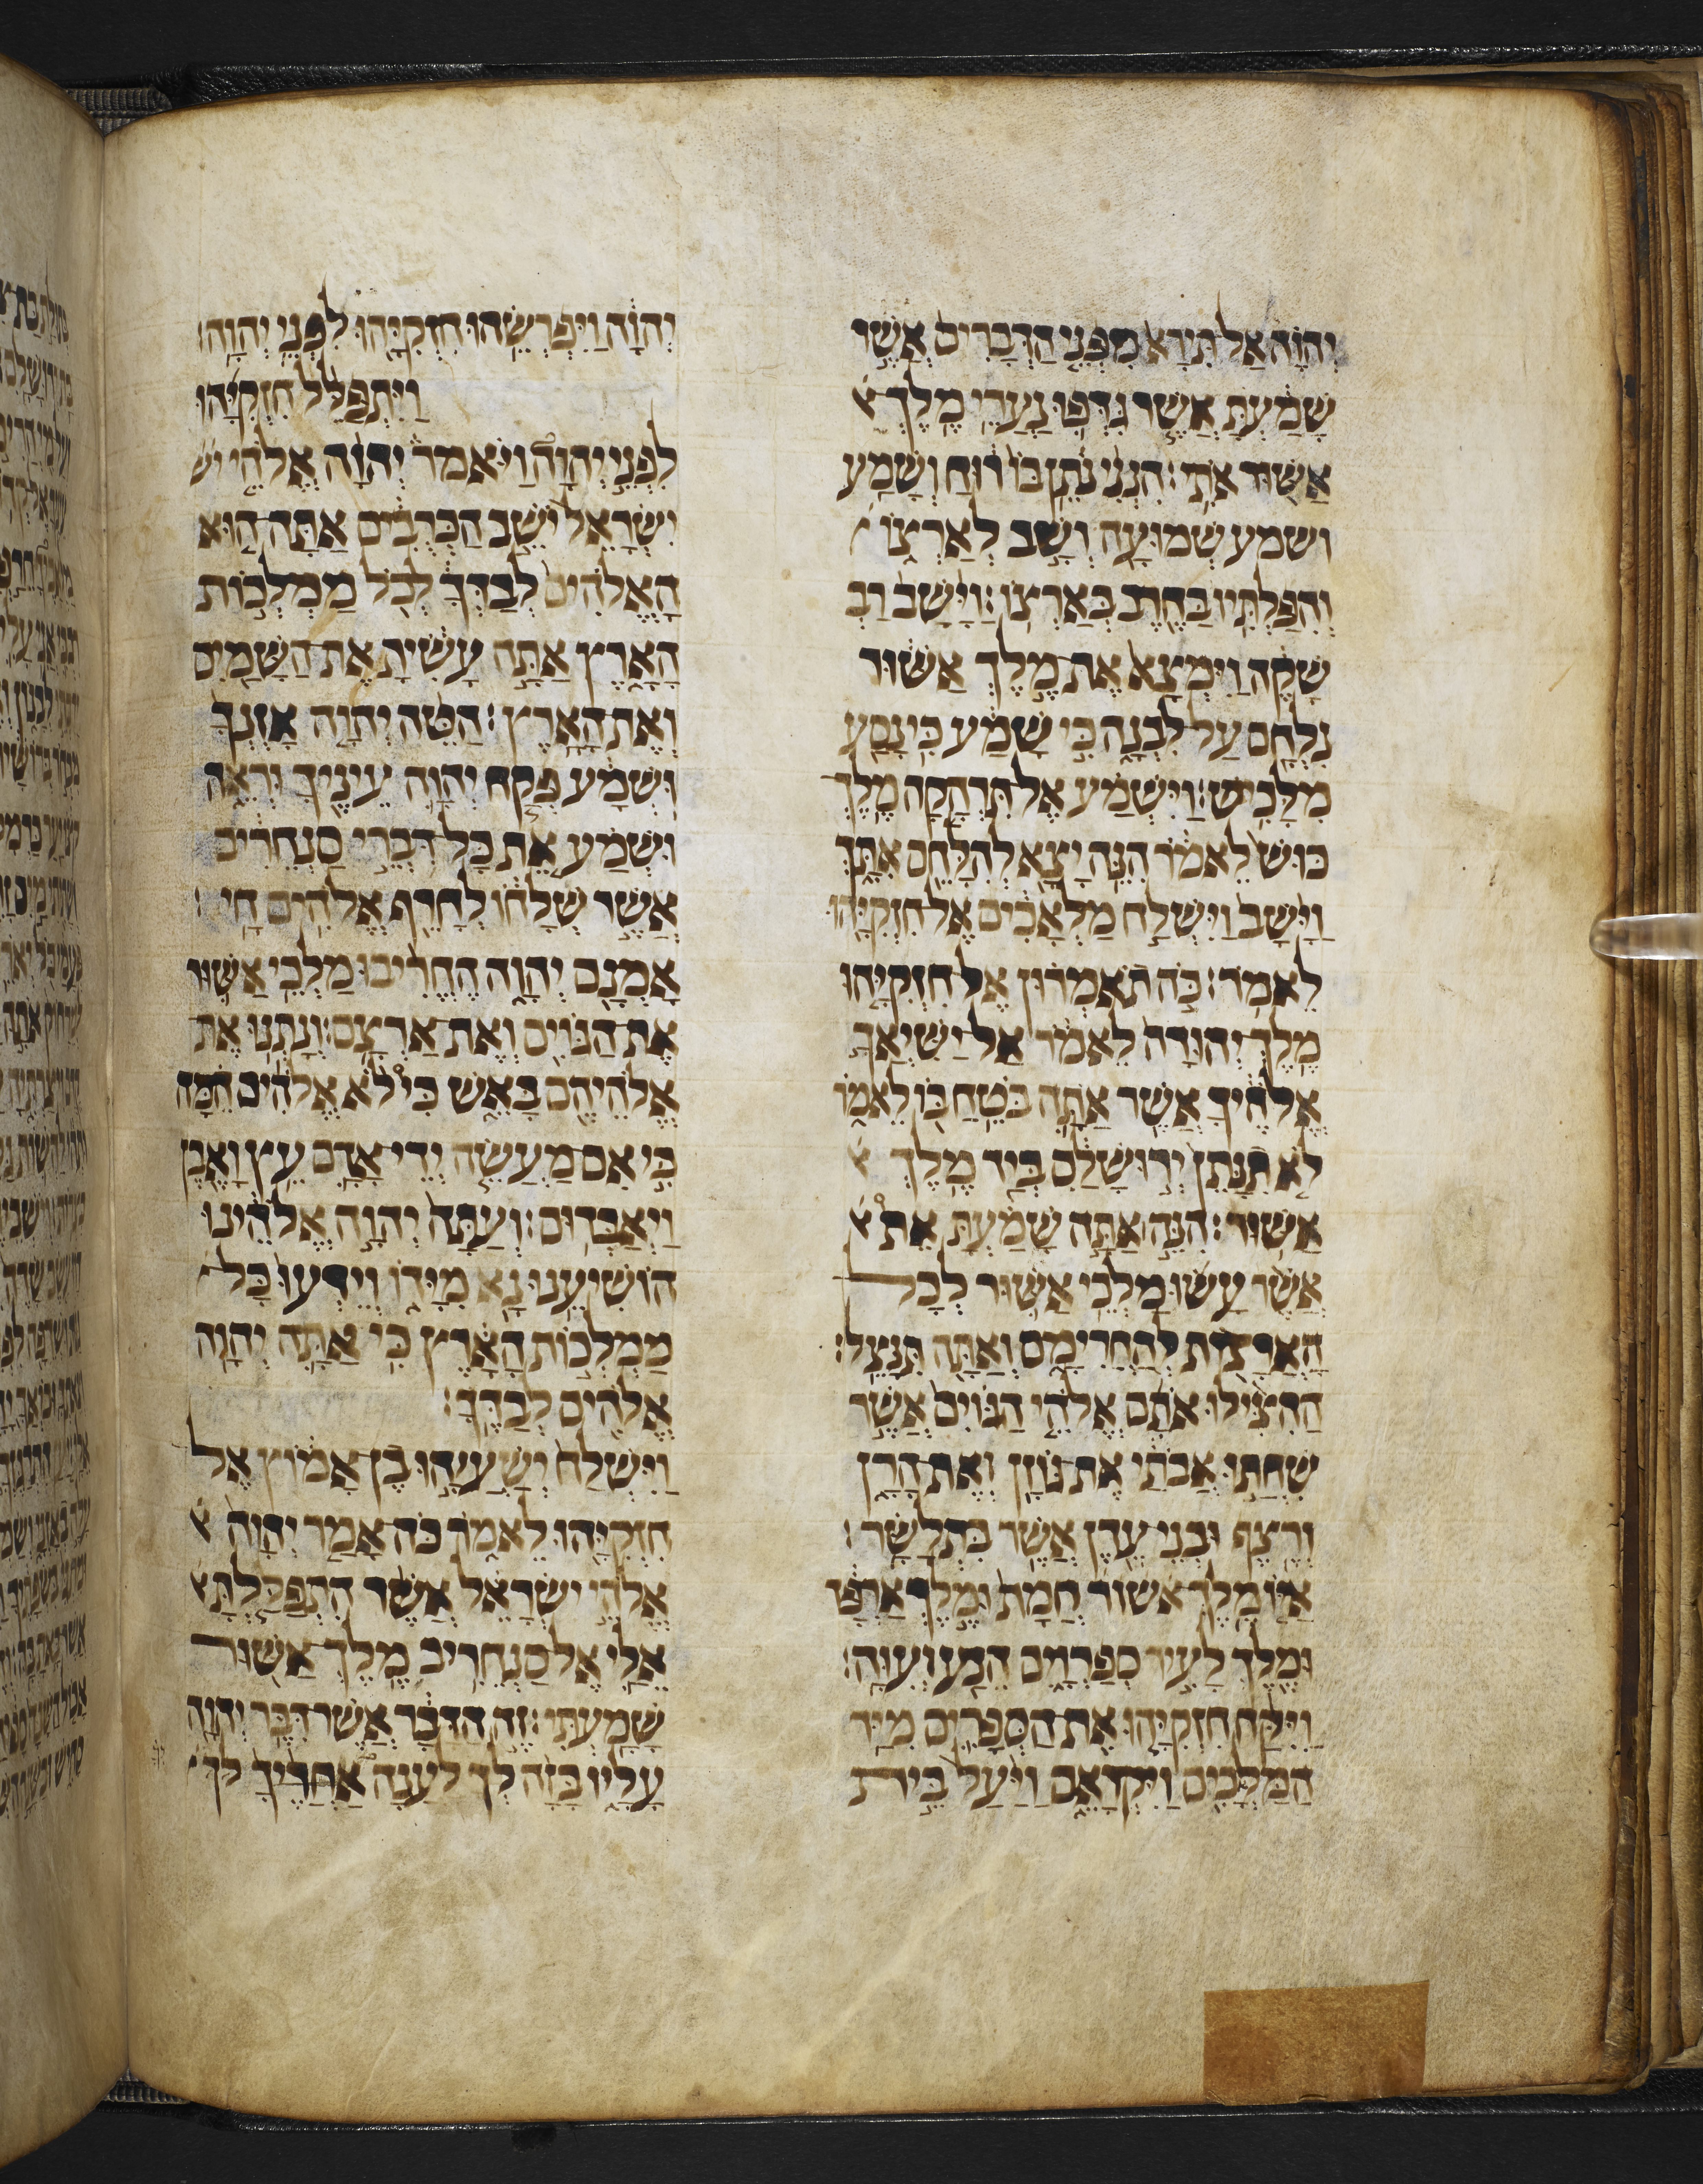 יְהוָה אַל תִּירָא מִפְּנֵי הַדְּבָרִים אֲשֶׁר
שָׁמַעְתָּ אֲשֶׁר גִּדְּפוּ נַעֲרֵי מֶלֶךְ א
אַשּׁוּר אֹתִי׃ הִנְנִי נֹתֵן בּוֹ רוּחַ וְשָׁמַע
ושמע שְׁמוּעָה וְשָׁב לְאַרְצוֹ
וְהִפַּלְתִּיו בַּחֶרֶב בְּאַרְצוֹ׃ וַיָּשָׁב רַבְ
שָׁקֵה וַיִּמְצָא אֶת מֶלֶךְ אַשּׁוּר
נִלְחָם עַל לִבְנָה כִּי שָׁמַע כִּי נָסַע
מִלָּכִישׁ׃ וַיִּשְׁמַע אֶל תִּרְהָקָה מֶלֶךְ
כּוּשׁ לֵאמֹר הִנֵּה יָצָא לְהִלָּחֵם אִתָּךְ
וַיָּשָׁב וַיִּשְׁלַח מַלְאָכִים אֶל חִזְקִיָּהוּ
לֵאמֹר׃ כֹּה תֹאמְרוּן אֶל חִזְקִיָּהוּ
מֶלֶךְ יְהוּדָה לֵאמֹר אַל יַשִּׁיאֲךָ
אֱלֹהֶיךָ אֲשֶׁר אַתָּה בֹּטֵחַ בּוֹ לֵאמֹר
לֹא תִנָּתֵן יְרוּשָׁלִַם בְּיַד מֶלֶךְ א
אַשּׁוּר׃ הִנֵּה אַתָּה שָׁמַעְתָּ אֵת א
אֲשֶׁר עָשׂוּ מַלְכֵי אַשּׁוּר לְכָל
הָאֲרָצוֹת לְהַחֲרִימָם וְאַתָּה תִּנָּצֵל׃
הַהִצִּילוּ אֹתָם אֱלֹהֵי הַגּוֹיִם אֲשֶׁר
שִׁחֲתוּ אֲבֹתַי אֶת גּוֹזָן וְאֶת חָרָן
וְרֶצֶף וּבְנֵי עֶדֶן אֲשֶׁר בִּתְלַשָּׂר׃
אַיּוֹ מֶלֶךְ אשור חֲמָת וּמֶלֶךְ אַרְפָּד
וּמֶלֶךְ לָעִיר סְפַרְוָיִם הֵנַע וְעִוָּה׃
וַיִּקַּח חִזְקִיָּהוּ אֶת הַסְּפָרִים מִיַּד
הַמַּלְאָכִים וַיִּקְרָאֵם וַיַּעַל בֵּית
יְהוָה וַיִּפְרְשֵׂהוּ חִזְקִיָּהוּ לִפְנֵי יְהוָה׃
וַיִּתְפַּלֵּל חִזְקִיָּהוּ
לִפְנֵי יְהוָה וַיֹּאמַר יְהוָה אֱלֹהֵי יש
יִשְׂרָאֵל יֹשֵׁב הַכְּרֻבִים אַתָּה הוּא
הָאֱלֹהִים לְבַדְּךָ לְכֹל מַמְלְכוֹת
הָאָרֶץ אַתָּה עָשִׂיתָ אֶת הַשָּׁמַיִם
וְאֶת הָאָרֶץ׃ הַטֵּה יְהוָה אָזְנְךָ
וּשְׁמָע פְּקַח יְהוָה עֵינֶיךָ וּרְאֵה
וּשְׁמַע אֵת כָּל דִּבְרֵי סַנְחֵרִיב
אֲשֶׁר שְׁלָחוֹ לְחָרֵף אֱלֹהִים חָי׃
אָמְנָם יְהוָה הֶחֱרִיבוּ מַלְכֵי אַשּׁוּר
אֶת הַגּוֹיִם וְאֶת אַרְצָם׃ וְנָתְנוּ אֶת
אֱלֹהֵיהֶם בָּאֵשׁ כִּי לֹא אֱלֹהִים הֵמָּה
כִּי אִם מַעֲשֵׂה יְדֵי אָדָם עֵץ וָאֶבֶן
וַיְאַבְּדוּם׃ וְעַתָּה יְהוָה אֱלֹהֵינוּ
הוֹשִׁיעֵנוּ נָא מִיָּדוֹ וְיֵדְעוּ כָּל
מַמְלְכוֹת הָאָרֶץ כִּי אַתָּה יְהוָה
אֱלֹהִים לְבַדֶּךָ׃
וַיִּשְׁלַח יְשַׁעְיָהוּ בֶן אָמוֹץ אֶל
חִזְקִיָּהוּ לֵאמֹר כֹּה אָמַר יְהוָה א
אֱלֹהֵי יִשְׂרָאֵל אֲשֶׁר הִתְפַּלַּלְתָּ א
אֵלַי אֶל סַנְחֵרִיב מֶלֶךְ אַשּׁוּר
שָׁמָעְתִּי׃ זֶה הַדָּבָר אֲשֶׁר דִּבֶּר יְהוָה
עָלָיו בָּזָה לְךָ לָעֲגָה אַחֲרֶיךָ לך